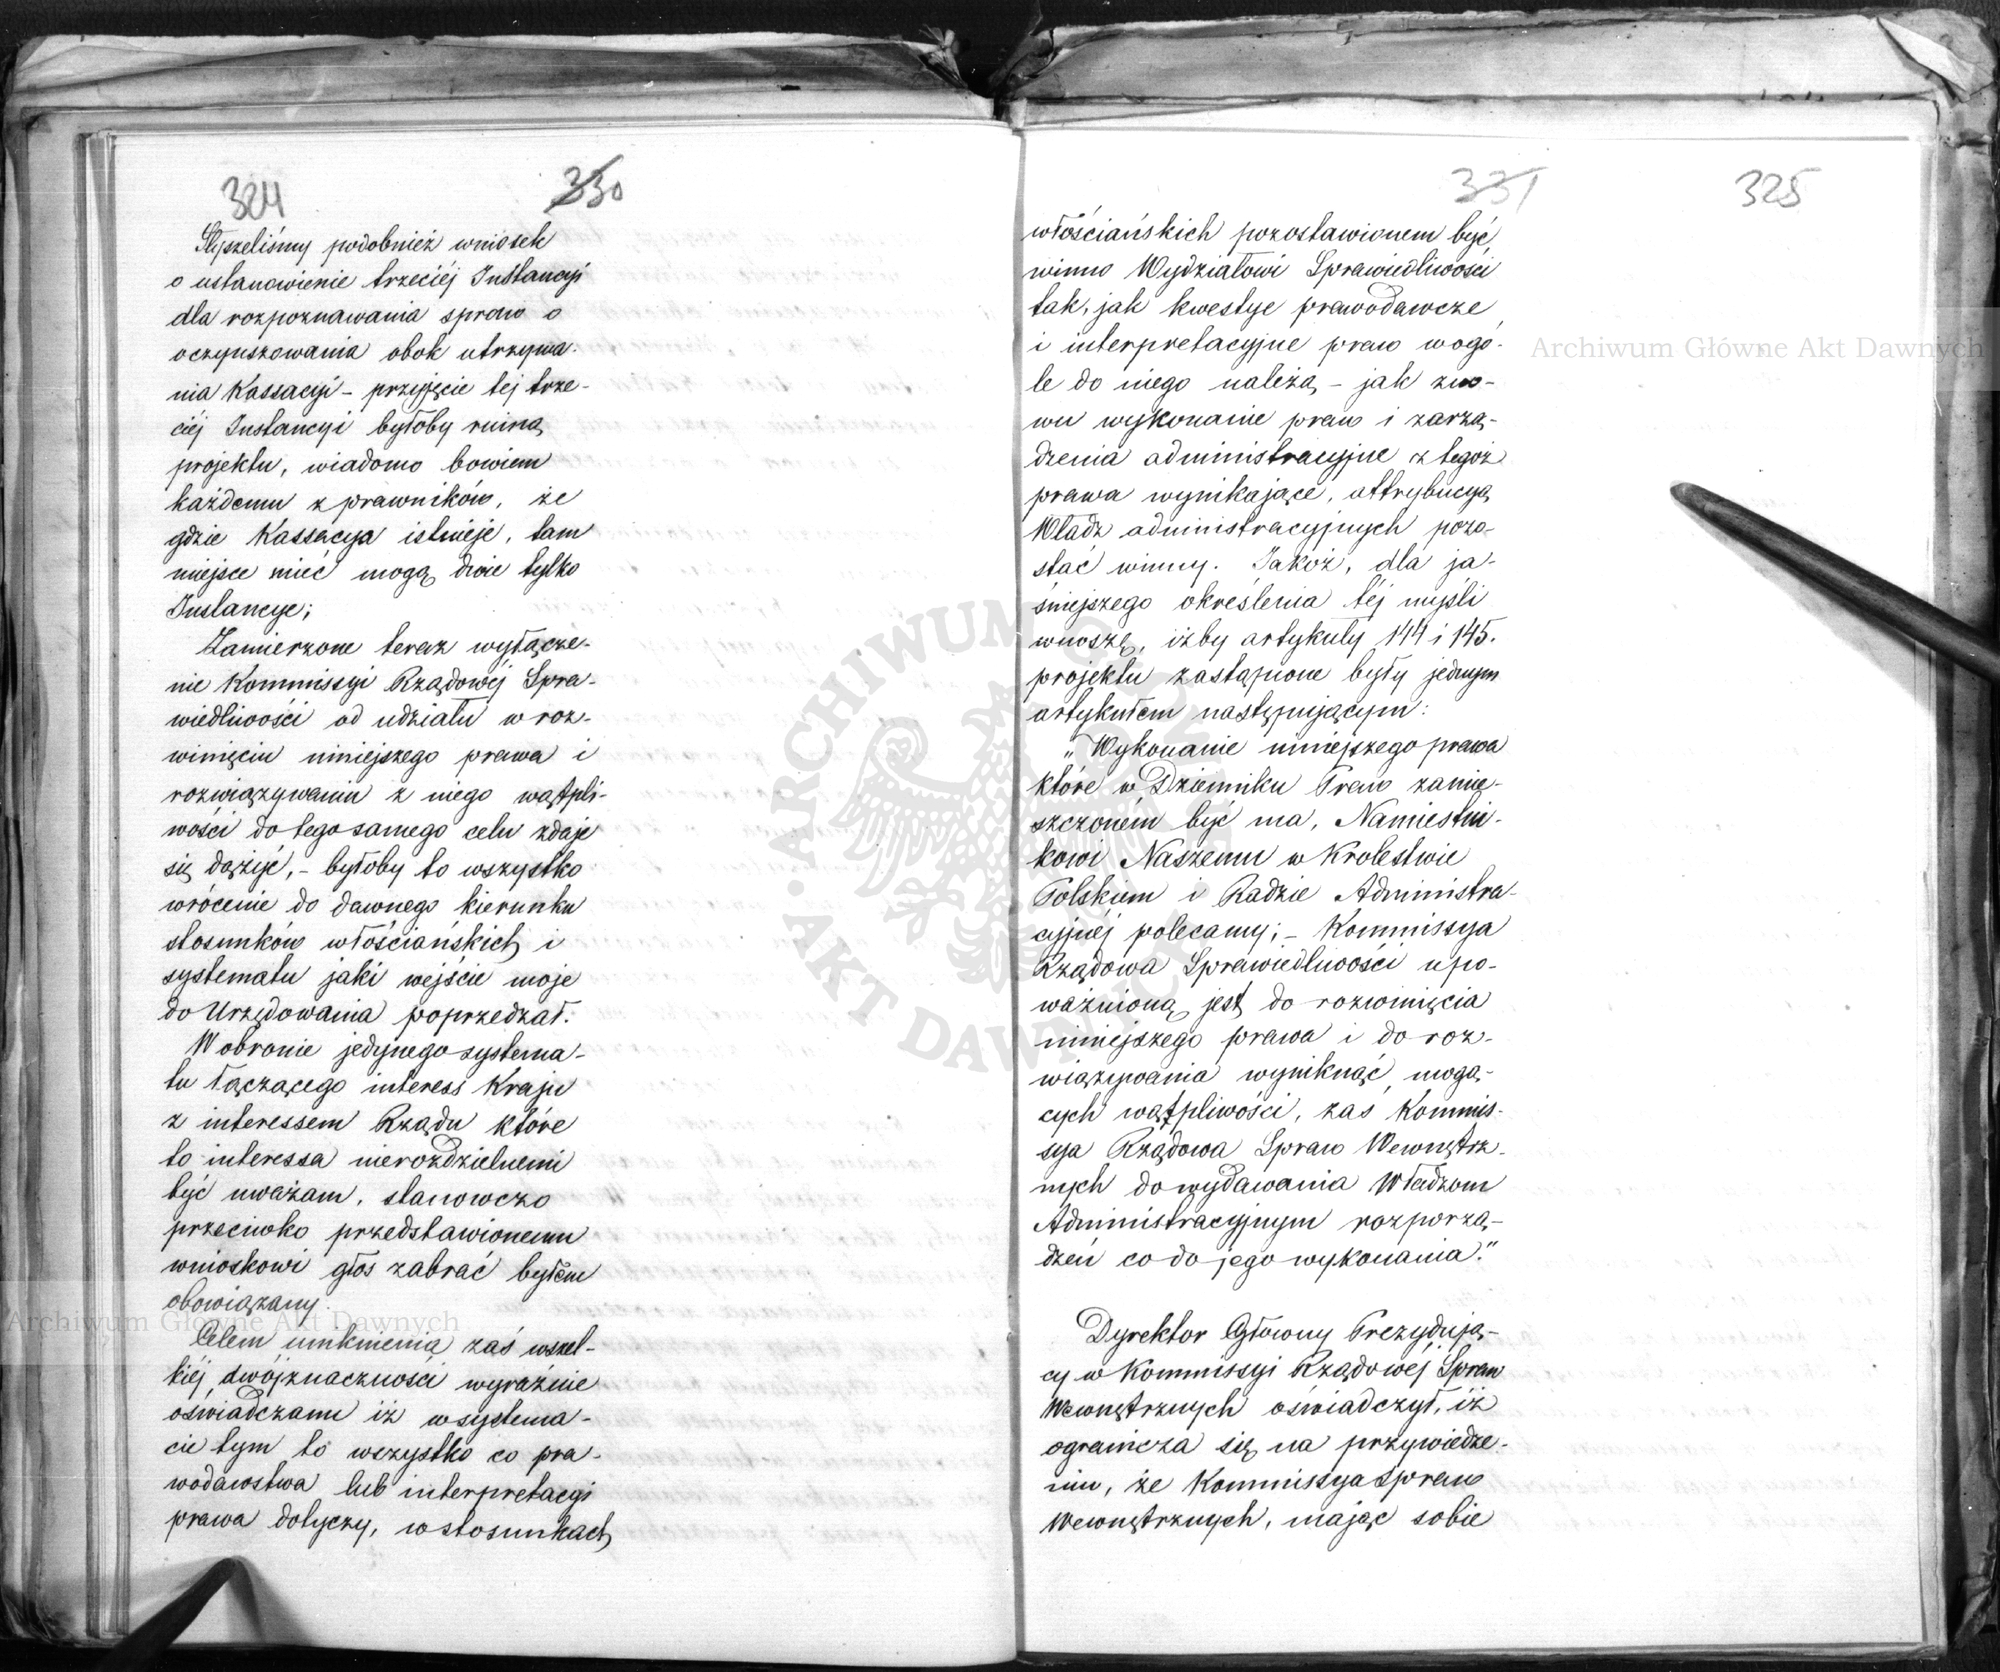 324
330
Słyszeliśmy podobnież wniosek
o ustanowienie trzeciéj Instancyi
dla rozpoznawania spraw o
oczynszowania obok utrzyma-
nia Kassacyi – przyjęcie téj trze-
ciéj Instancyi byłoby ruiną
projektu, wiadomo bowiem
każdemu z prawników, że
gdzie Kassacya istnieje, tam
miejsce mieć mogą dwie tylko
Instancye;
Zamierzone teraz wyłącze-
nie Kommissyi Rządowéj Spra-
wiedliwości od udziału w roz-
winięciu niniejszego prawa i
rozwiązywaniu z niego wątpli-
wości do tego samego celu zdaje
się dążyć, – byłoby to wszystko
wrócenie do dawnego kierunku
stosunków włościańskich i
systematu jaki wejście moje
do Urzędowania poprzedzał.
W obronie jedynego systema-
tu łączącego interess Kraju
z interessem Rządu które
to interessa nierozdzielnemi
być uważam, stanowczo
przeciwko przedstawionemu
wnioskowi głos zabrać byłem
obowiązany.
Celem umknienia zaś wszel-
kiéj dwójznaczności wyraźnie
oświadczam iż w systema-
cie tym to wszystko co pra-
wodawstwa lub interpretacyi
prawa dotyczy, w stosunkach
331
325
włościańskich pozostawionem być
winno Wydziałowi Sprawiedliwości
tak, jak kwestye prawodawcze
i interpretacyjne praw wogó-
le do niego należą – jak zno-
wu wykonanie praw i zarzą-
dzenia administracyjne z tegoż
prawa wynikające, attrybucyą
Władz administracyjnych pozo-
stać winny. Jakoż, dla ja-
śniejszego określenia téj myśli
wnoszę, iżby artykuły 144 i 145.
projektu zastąpione były jednym
artykułem następującym:
„Wykonanie niniejszego prawa
które w Dzienniku Praw zamie-
szczoném być ma, Namiestni-
kowi Naszemu w Krolestwie
Polskiem i Radzie Administra-
cyjnéj polecamy; – Kommissya
Rządowa Sprawiedliwości upo-
ważnioną jest do rozwinięcia
niniejszego prawa i do roz-
wiązywania wyniknąć mogą-
cych wątpliwości, zaś Kommis-
sya Rządowa Spraw Wewnętrz-
nych do wydawania Władzom
Administracyjnym rozporzą-
dzeń co do jego wykonania."
Dyrektor Główny Prezydują-
cy w Kommissyi Rządowéj Spraw
Wewnętrznych oświadczył, iż
ogranicza się na przywiedze-
niu, że Kommissya Spraw
Wewnętrznych, mając sobie
Archiwum Główne Akt Dawnych
Archiwum Główne Akt Dawnych